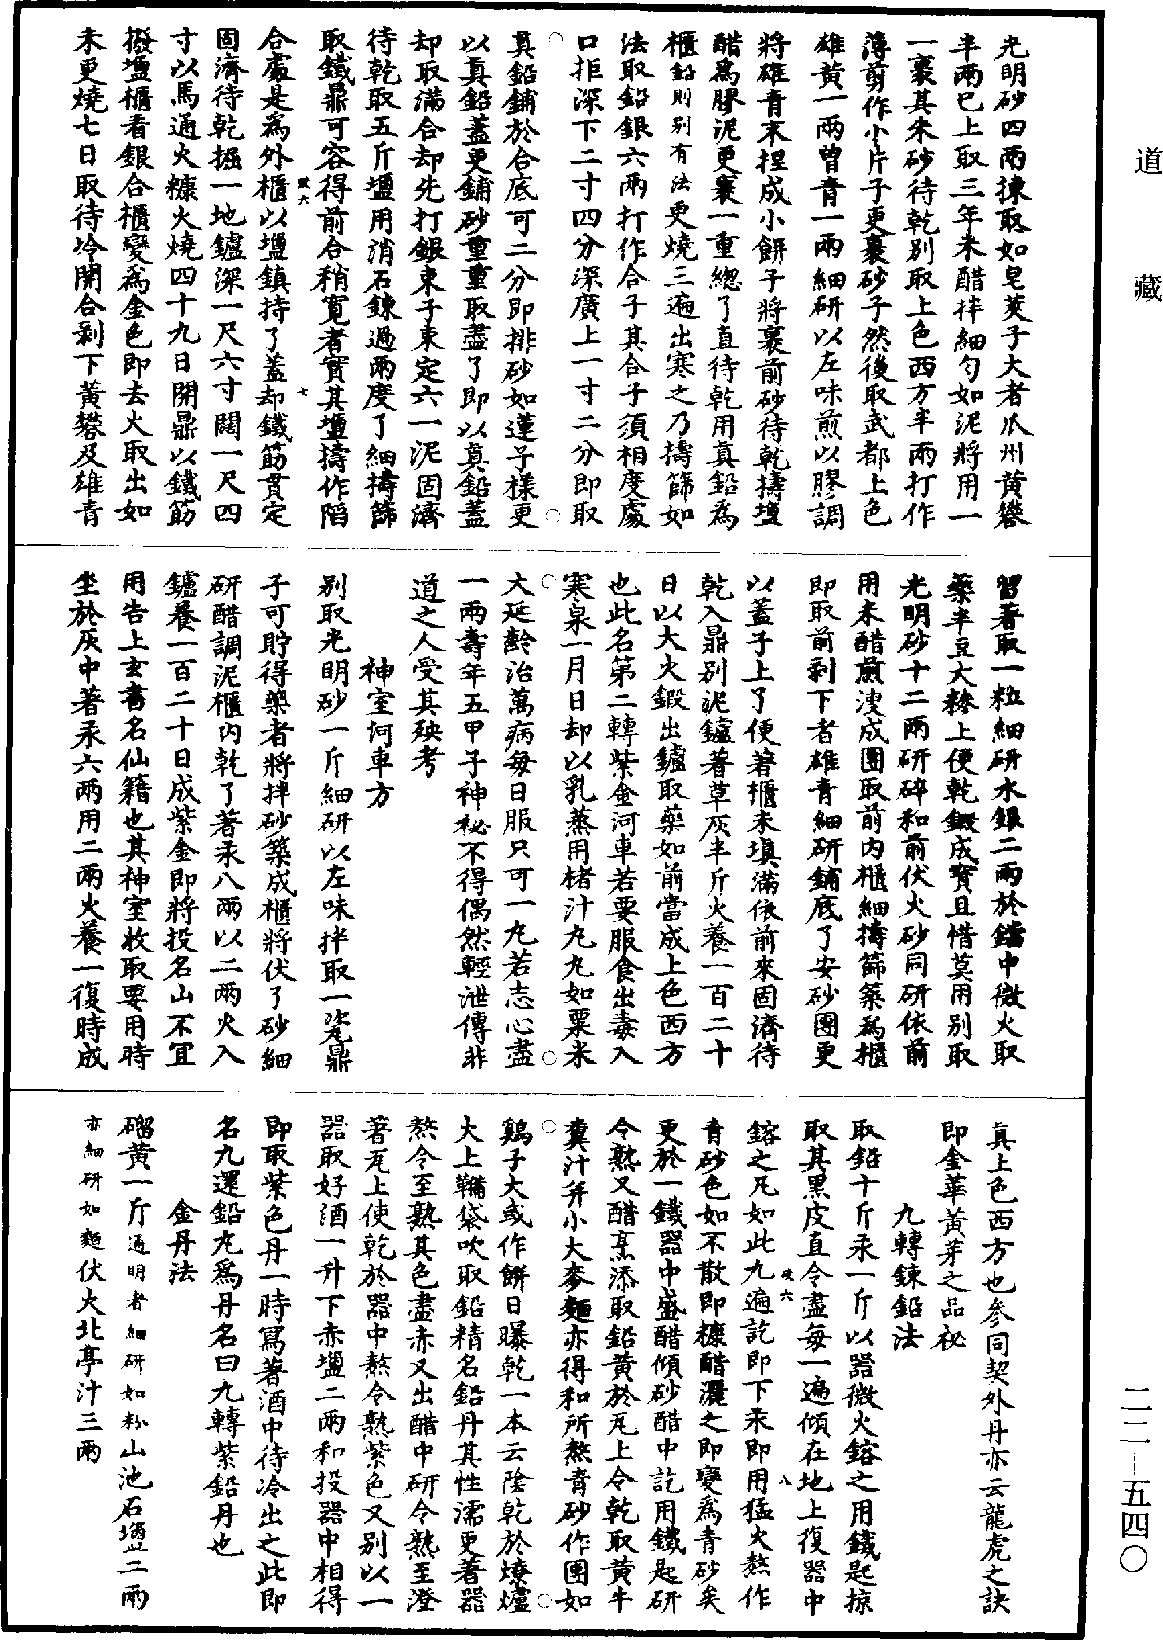 道藏
光明砂四兩揀取如皂莢子大者瓜州黃礬
半兩巳上取三年米醋拌細勻如泥將用一
一裹其朱砂待乾別取上色西方半兩打作
薄剪作小片子更裹砂子然後取武都上色
雄黃一兩曾青一兩細研以左味煎以膠調
將雄青末捏成小餅子將裹前砂待乾擣塩
醋為膠泥更裹一重緫了直待乾用真鉛為
櫃鉛則別有法更燒三遍出寒之乃擣篩如
法取鉛銀六兩打作合子其合子須相度處
口拒深下二寸四分深廣上一寸二分即取
真鉛鋪於合底可二分即排砂如蓮子樣更
以真鉛蓋更鋪砂重重取盡了即以真鉛蓋
却取滿合却先打銀束子束定六一泥固濟
待乾取五斤塩用消石鍊過兩度了細擣篩
取鐵鼎可容得前合稍寬者實其塩擣作陷
合處是為外櫃以塩鎮持了蓋却鐵筋貫定
固濟待乾掘一地鑪深一尺六寸闊一尺四
寸以馬通火糠火燒四十九日開鼎以鐵筋
撥塩櫃看銀合櫃變為金色即去火取出如
未更燒七日取待冷開合剥下黃礬及雄青
習著取一粒細研水銀二兩於鐺中微火取
藥半豆大糝上便乾鍜成寳且惜莫用別取
光明砂十二兩研碎和前伏火砂同研依前
用米醋煎溲成團取前內櫃細擣篩築為櫃
即取前剥下者雄青細研鋪底了安砂團更
以蓋子上了便著櫃末填滿依前來固濟待
乾入鼎別泥鑪著草灰半斤火養一百二十
日以大火鍜出鑪取藥如前當成上色西方
也此名第二轉紫金河車若要服食出毒入
寒泉一月日却以乳蒸用楮汁丸丸如粟米
大延齡治萬病每日服只可一丸若志心盡
一兩壽年五甲子神祕不得偶然輕泄傳非
道之人受其殃考
神室河車方
別取光明砂一斤細研以左味拌取一瓷鼎
子可貯得藥者將拌砂築成櫃將伏了砂細
研醋調泥櫃內乾了著汞八兩以二兩火入
鑪養一百二十日成紫金即將投名山不宜
用告上玄書名仙籍也其神室收取要用時
坐於灰中著汞六兩用二兩火養一復時成
真上色西方也參同契外丹亦云龍虎之訣
即金華黃芽之品祕
九轉鍊鉛法
取鉛十斤汞一斤以器微火鎔之用鐵匙掠
取其黑皮直令盡每一遍傾在地上復器中
鎔之凡如此九遍訖即下汞即用猛火熬作
青砂色如不散即糠醋灑之即變為青砂矣
更於一鐵器中盛醋傾砂醋中訖用鐵匙研
令熟又醋烹添取鉛黃於瓦上令乾取黃牛
糞汁并小大麥麵亦得和所熬青砂作團如
鷄子大或作餅日曝乾一本云陰乾於燎爐
火上鞴袋吹取鉛精名鉛丹其性濡更著器
熬令至熟其色盡赤又出醋中研令熟至澄
著瓦上使乾於器中熬令熟紫色又別以一
器取好酒一升下赤塩二兩和投器中相得
即取紫色丹一時寫著酒中待冷出之此即
名九還鉛丸為丹名曰九轉紫鉛丹也
金丹法
硇黃一斤通明者細研如粉山池石塩二兩
亦細研如麵伏火北亭汁三兩
二二―五四〇